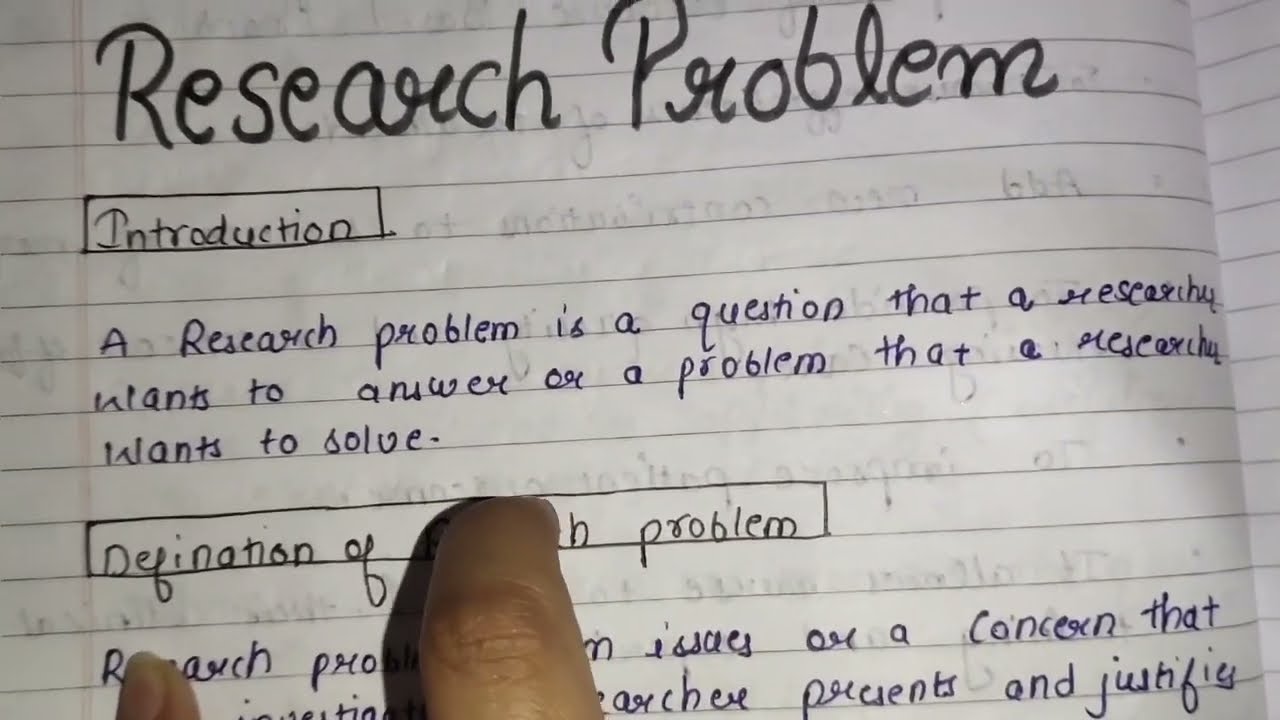 Research Problem
Introduction
A Research problem is a question that a researcher
wants to answer or a problem that a researcher
wants to solve.
Defination of h problem
R arch probl m issues or a concern that
investigat archer presents and justifies